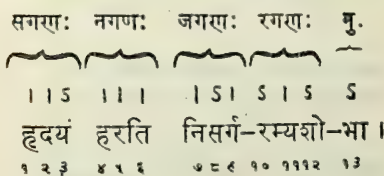 सगणः नगणः जगणः रगणः गु.
।।ऽ ।।। ।ऽ। ऽ।ऽ ऽ
हृदयं हरति निसर्ग-रम्यशो-भा ।
१ २ ३ ४ ५ ६ ७ ८ ९ १० ११ १२ १३